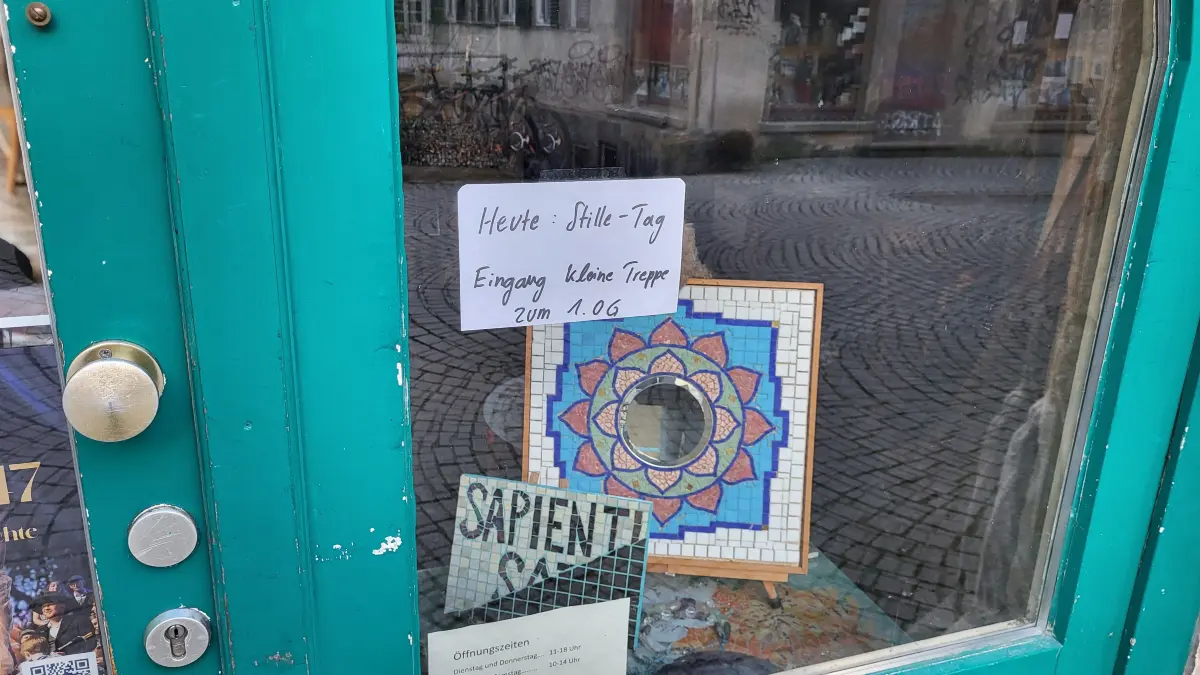 Heute : Stille-Tag
Eingang kleine Treppe
zum 1. OG
SAPIENTI
17
hte
Öffnungszeiten
Dienstag und Donnerstag... 11-18 Uhr
10-14 Uhr